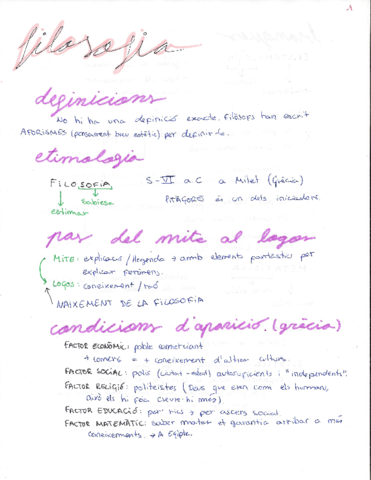 1
filosofia
definicions
No hi ha una definició exacte. Filòsofs han escrit
AFORISMES (pensament breu estètic) per definir-lo.
etimologia
FILOSOFIA S-VI a.C a Milet (Grècia)
Sabiesa PITÀGORES és un dels iniciadors
estimar
pas del mite al logos
MITE: explicació / llegenda → amb elements fantàstics per
explicar fenòmens.
LOGOS: coneixement / raó
NAIXEMENT DE LA FILOSOFIA
condicions d'aparició. (grècia)
FACTOR ECONÒMIC: poble comerciant
+ comerç = + coneixement d'altres cultures.
FACTOR SOCIAL: polis (ciutat-estat) autosuficients i "independents".
FACTOR RELIGIÓ: politeistes (Deus que eren com els humans,
això els hi feia creure-hi més).
FACTOR EDUCACIÓ: per rics i per ascens social.
FACTOR MATEMÀTIC: saber mates et garantia arribar a més
coneixements. → A Egipte.